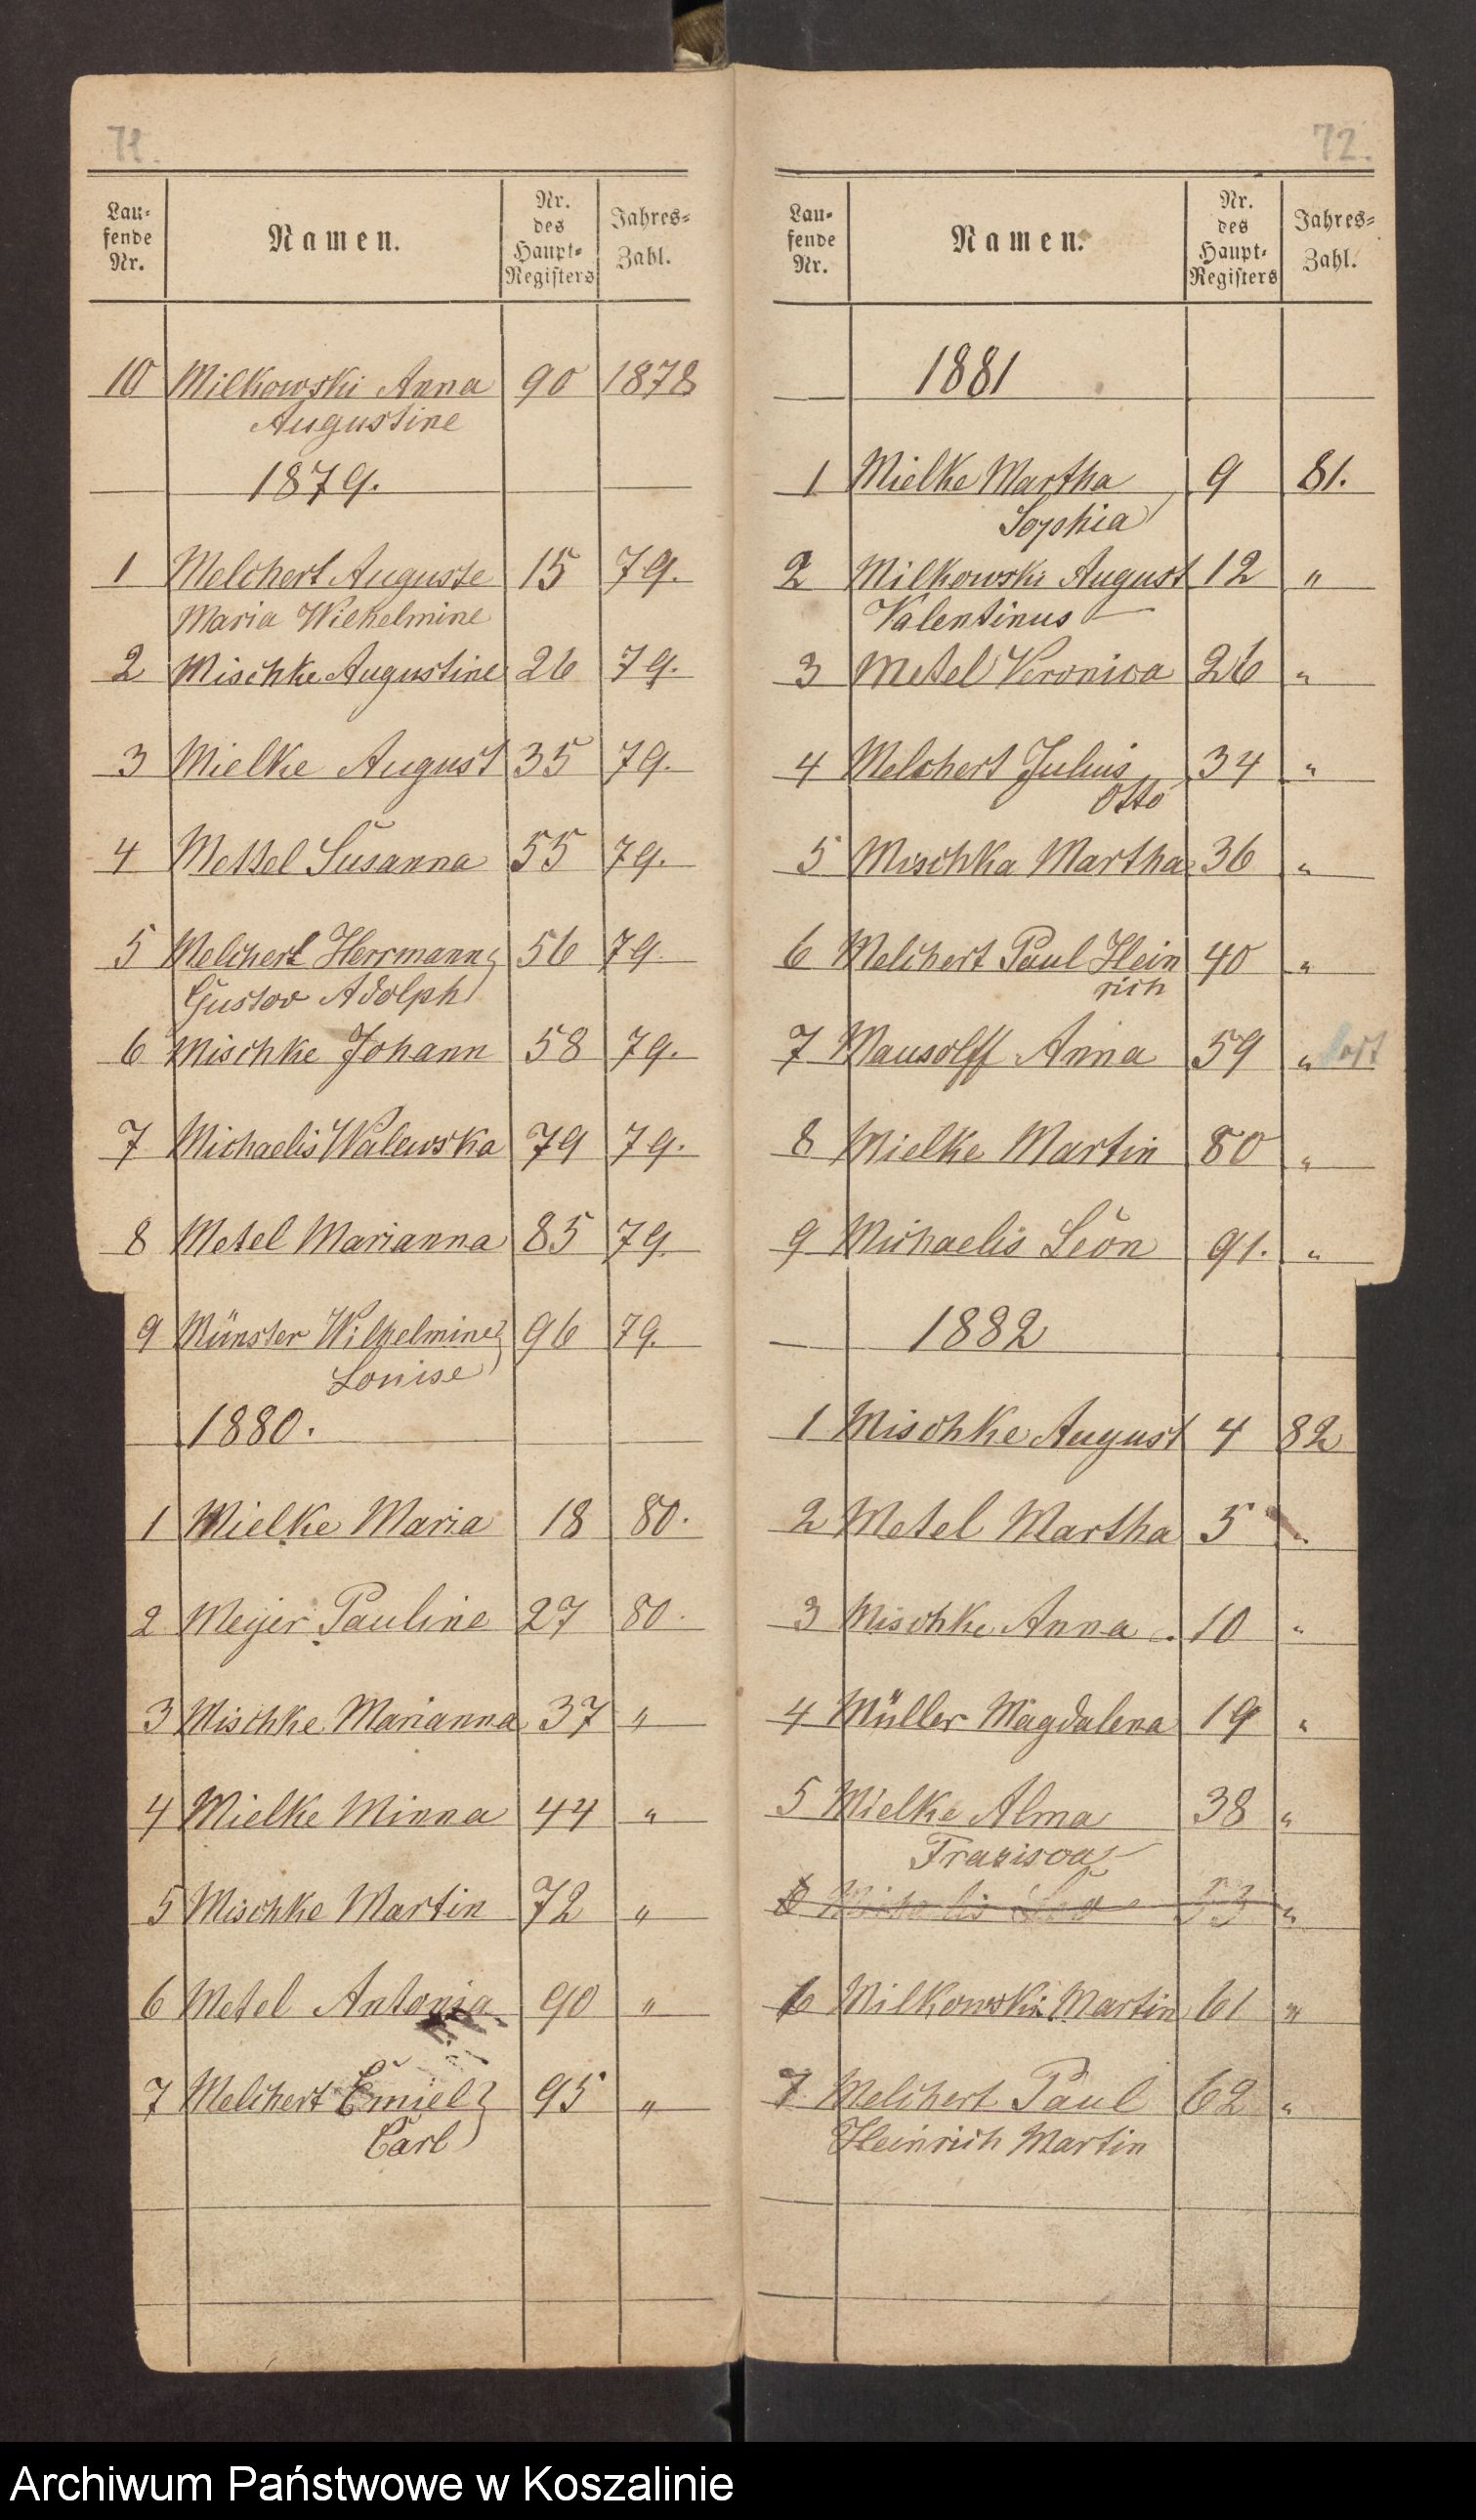 71.
Lau-
fende
Nr.
Namen.
Nr.
des
Haupt-
Registers
Jahres-
Zahl.
10 Milkowski Anna 90 1878
Augustine
1879.
1 Melchert Auguste 15 79.
Maria Wilhelmine
2 Mischke Augustine 26 79.
3 Mielke August 35 79.
4 Metzel Susanna 55 79.
5 Melchert Herrmann 56 79.
Gustav Adolph
6 Mischke Johann 58 79.
7 Michaelis Walewska 79 79.
8 Metel Marianna 85 79.
9 Münster Wilhelmine 96 79.
Louise
1880.
1 Mielke Maria 18 80.
2 Meyer Pauline 27 80.
3 Mischke Marianna 37 "
4 Mielke Minna 44 "
5 Mischke Martin 72 "
6 Metel Antonia 90 "
7 Melchert Emiel 95 "
Carl
72.
Lau-
fende
Nr.
Namen.
Nr.
des
Haupt-
Registers
Jahres-
Zahl.
1881
1 Mielke Martha 9 81.
Sophia
2 Milkowski August 12 "
Valentinus
3 Metel Veronica 26 "
4 Melchert Julius 34 "
Otto
5 Mischka Martha 36 "
6 Melchert Paul Hein 40 "
rich
7 Mausolff Anna 59 "
8 Mielke Martin 80 "
9 Michaelis Léon 91. "
1882
1 Mischke August 4 82
2 Metel Martha 5 "
3 Mischke Anna 10 "
4 Müller Magdalena 19 "
5 Mielke Alma 38 "
Franisca
6 Michaelis 53 "
6 Milkowski Martin 61 "
7 Melchert Paul 62 "
Heinrich Martin
Archiwum Państwowe w Koszalinie